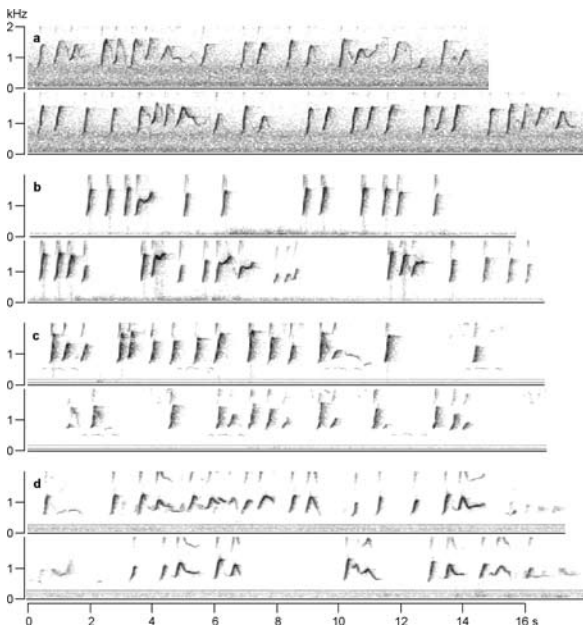 kHz
2
a
1
0
1
0
b
1
0
1
0
c
1
0
1
0
d
1
0
1
0
0 2 4 6 8 10 12 14 16 s